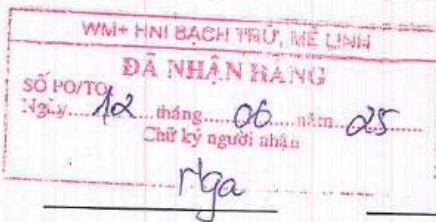 WM+ HNI BẠCH TRỮ, MÊ LINH
ĐÃ NHẬN HÀNG
SỐ PO/TO
Ngày.....12.....tháng.....06.....năm.....25.....
Chữ ký người nhận
Nga